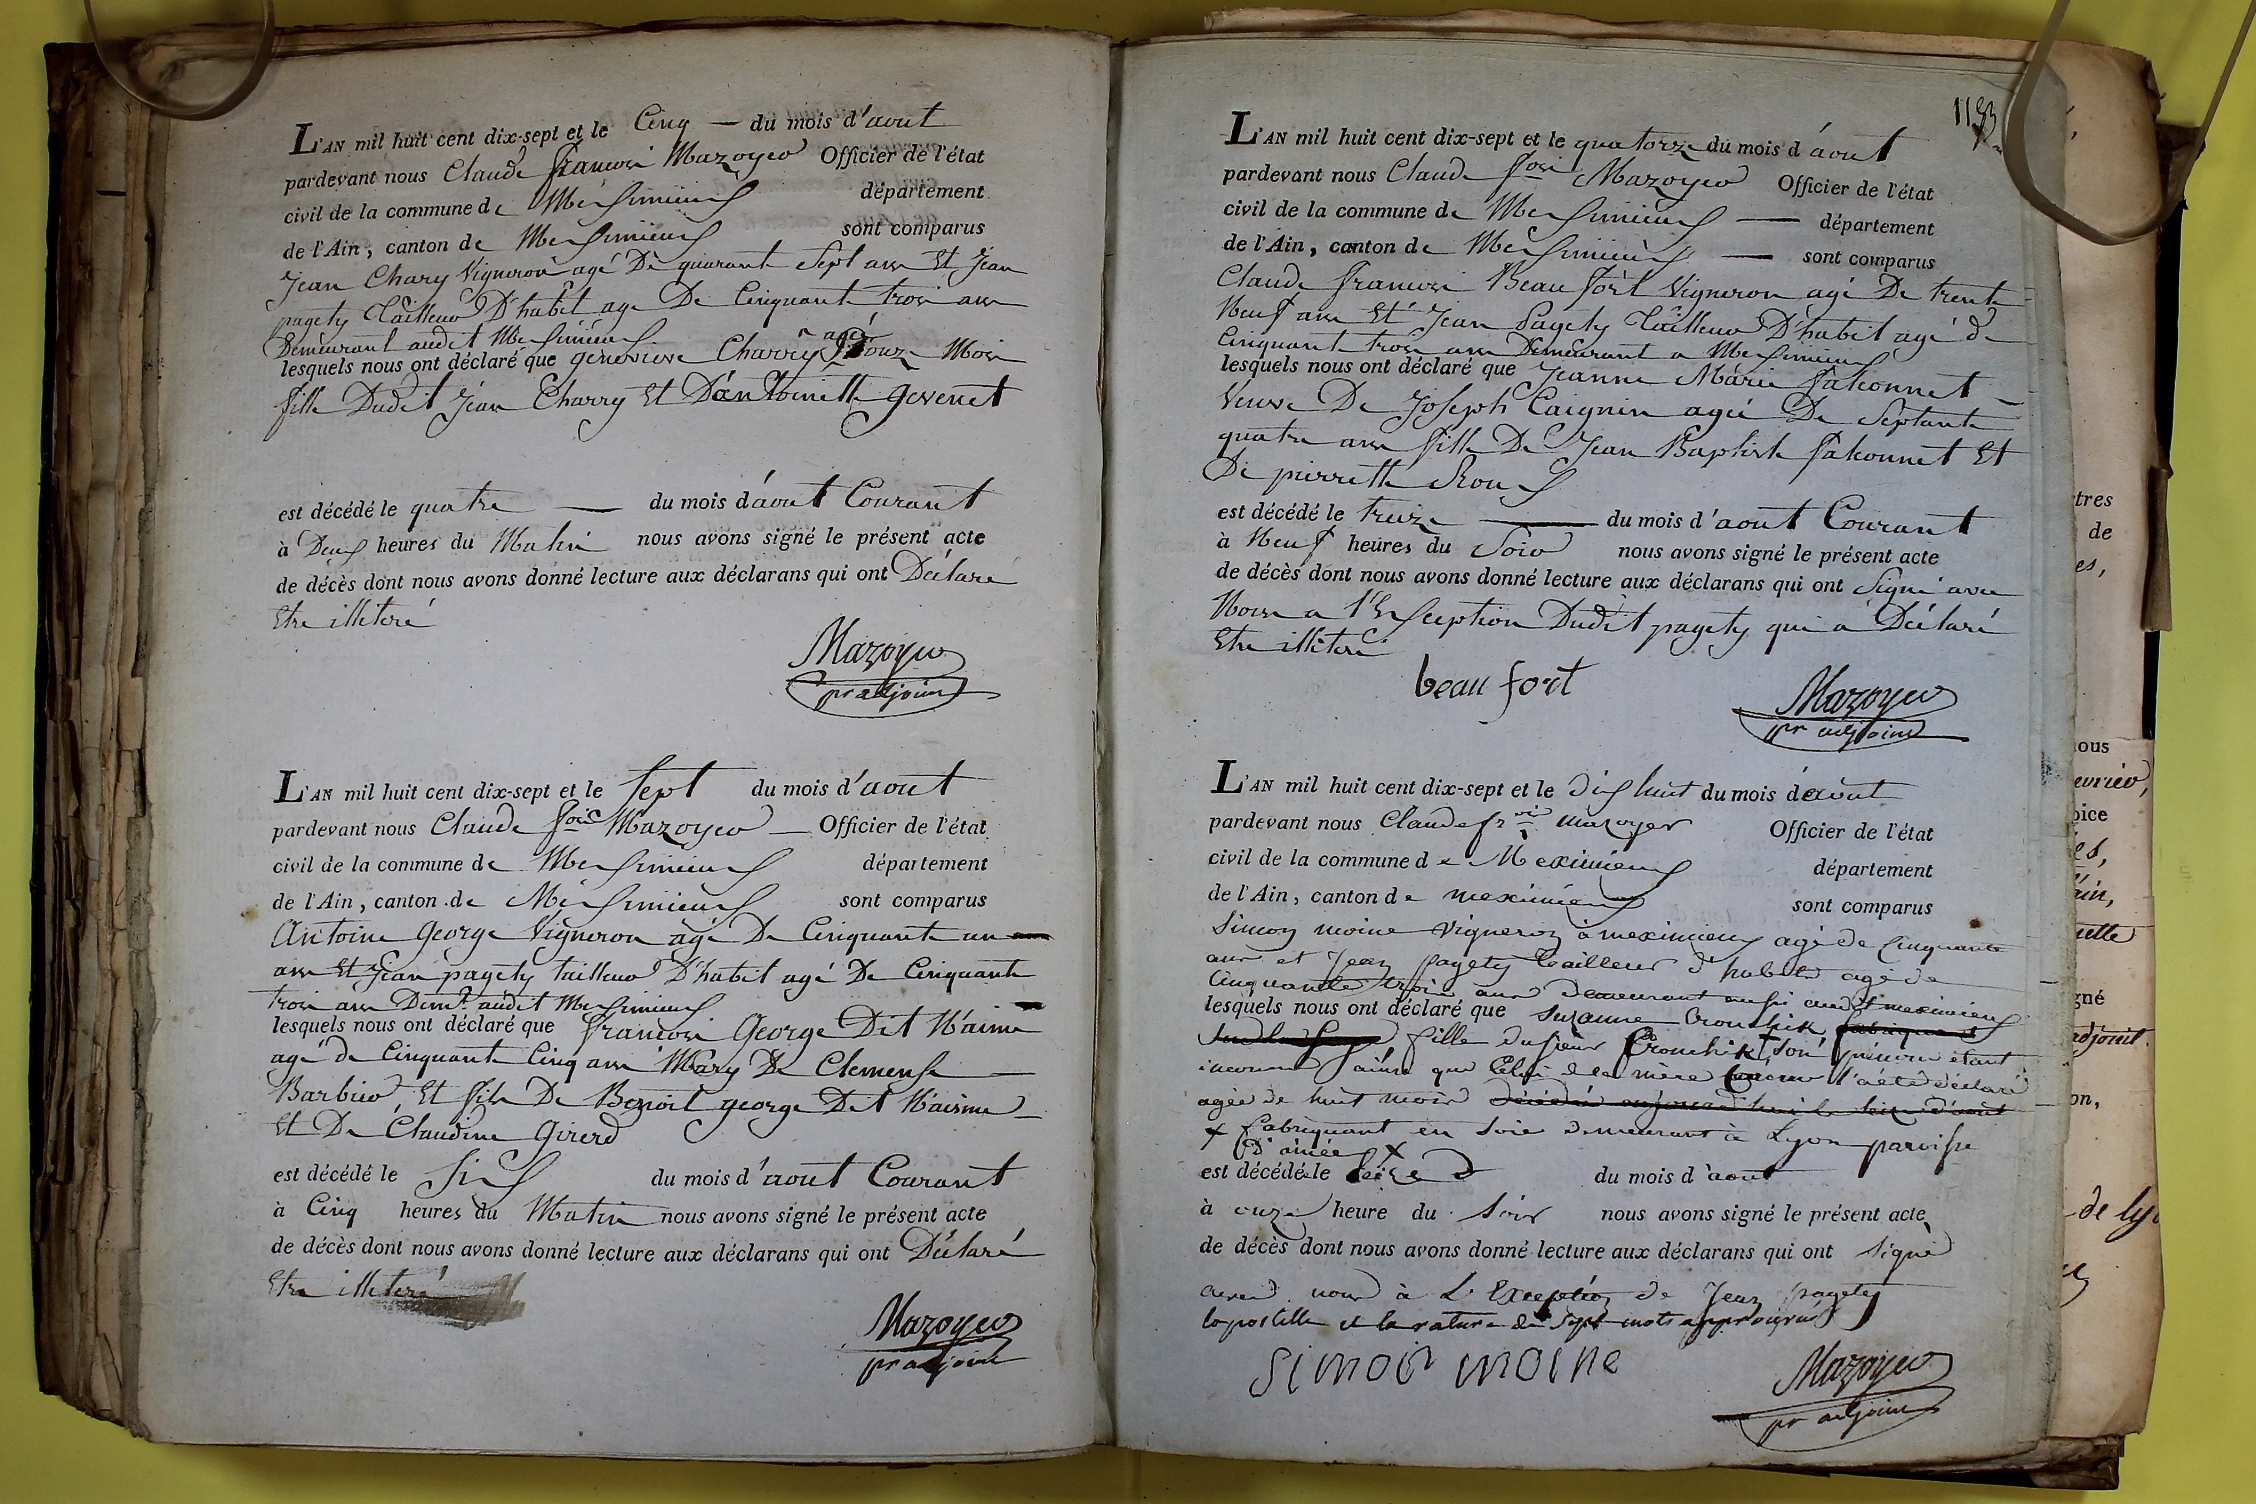 L'AN mil huit cent dix-sept et le Cinq — du mois d'aout
pardevant nous Claude francois Mazoyer Officier de l'état
civil de la commune de Messimieux département
de l'Ain, canton de Messimieux sont comparus
Jean Chary Vigneron agé De quarant Sept ans Et Jean
pagety Tailleur D'habit age De Cinquant trois ans
Demeurant audit Messimieux
lesquels nous ont déclaré que genevieve Charry agé Douze Mois
fille Dudit Jean Charry Et D'antoinette gevenet
est décédé le quatre — du mois d'aout Courant
à Deux heures du Matin nous avons signé le présent acte
de décès dont nous avons donné lecture aux déclarans qui ont Déclaré
Etre illiteré
Mazoyer
pr adjoint
L'AN mil huit cent dix-sept et le Sept du mois d'aout
pardevant nous Claude fois Mazoyer — Officier de l'état
civil de la commune de Messimieux département
de l'Ain, canton de Messimieux sont comparus
Antoine George Vigneron agé De Cinquante un
ans Et Jean pagety tailleur D'habit agé De Cinquante
trois ans Demt audit Messimieux
lesquels nous ont déclaré que francois George Dit N'aime
agé de Cinquante Cinq ans Mary De Clemense
Barbier Et fils De Benoit george Dit N'aisme
Et De Claudine Girerd
est décédé le Six du mois d'aout Courant
à Cinq heures du Matin nous avons signé le présent acte
de décès dont nous avons donné lecture aux déclarans qui ont Déclaré
Etre illiteré
Mazoyer
pr adjoint
L'AN mil huit cent dix-sept et le quatorze du mois d'aout
pardevant nous Claude fois Mazoyer Officier de l'état
civil de la commune de Messimieux — département
de l'Ain, canton de Messimieux — sont comparus
Claude francois Beaufort Vigneron agé De trente
Neuf ans Et Jean Pagety Tailleur D'habit agé de
Cinquant trois ans Demeurant a Messimieux
lesquels nous ont déclaré que Jeanne Marie falconnet
Veuve De Joseph Caignin agée De Septante
quatre ans fille De Jean Baptiste falconnet Et
De pierrette Roux
est décédé le treize — du mois d'aout Courant
à Neuf heures du Soir nous avons signé le présent acte
de décès dont nous avons donné lecture aux déclarans qui ont Signé avec
Nous a l'Exseption Dudit pagety qui a Déclaré
Etre illiteré
beaufort
Mazoyer
pr adjoint
L'AN mil huit cent dix-sept et le dix huit du mois d'aout
pardevant nous Claude fr ois mazoyer Officier de l'état
civil de la commune de Meximieux département
de l'Ain, canton de meximieux sont comparus
Simon moine Vigneron à meximieux agé de Cinquante
ans et Jean pagety tailleur d'habits agé de
Cinquante trois ans demeurant aussi audit meximieux
lesquels nous ont déclaré que Suzanne Crouchik
fille du sieur Crouchik + son prénom étant
inconnu j'ainsi que Celui de la mère l'a été déclaré
agée de huit mois
+ fabriquant en Soie demeurant à Lyon paroisse
D'ainée +
est décédé le seize du mois d'aout
à onze heure du Soir nous avons signé le présent acte
de décès dont nous avons donné lecture aux déclarans qui ont signé
avec nous à L'Exception de Jean pagety
lapostille et la rature de Sept mots approuvés
Simon moine
Mazoyer
pr adjoint